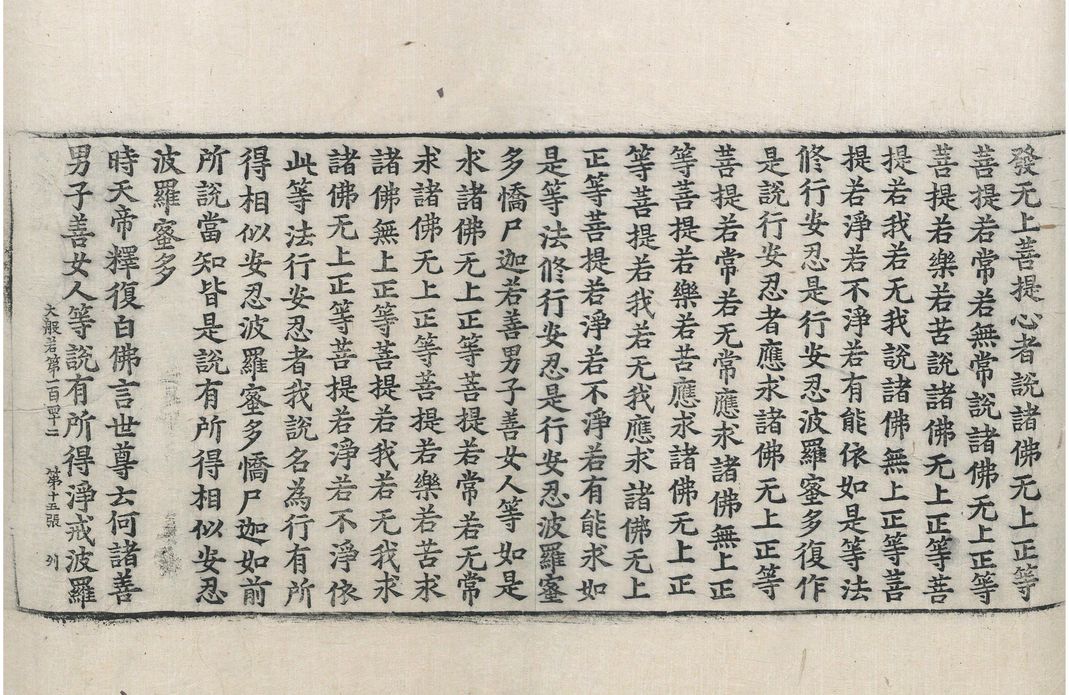 發无上菩提心者說諸佛无上正等
菩提若常若無常說諸佛无上正等
菩提若樂若苦說諸佛无上正等菩
提若我若无我說諸佛無上正等菩
提若淨若不淨若有能依如是等法
修行安忍是行安忍波羅蜜多復作
是說行安忍者應求諸佛无上正等
菩提若常若无常應求諸佛無上正
等菩提若樂若苦應求諸佛无上正
等菩提若我若无我應求諸佛无上
正等菩提若淨若不淨若有能求如
是等法修行安忍是行安忍波羅蜜
多憍尸迦若善男子善女人等如是
求諸佛无上正等菩提若常若无常
求諸佛无上正等菩提若樂若苦求
諸佛無上正等菩提若我若无我求
諸佛无上正等菩提若淨若不淨依
此等法行安忍者我說名為行有所
得相似安忍波羅蜜多憍尸迦如前
所說當知皆是說有所得相似安忍
波羅蜜多
時天帝釋復白佛言世尊云何諸善
男子善女人等說有所得淨戒波羅
大般若第一百四十二 第十五張 列